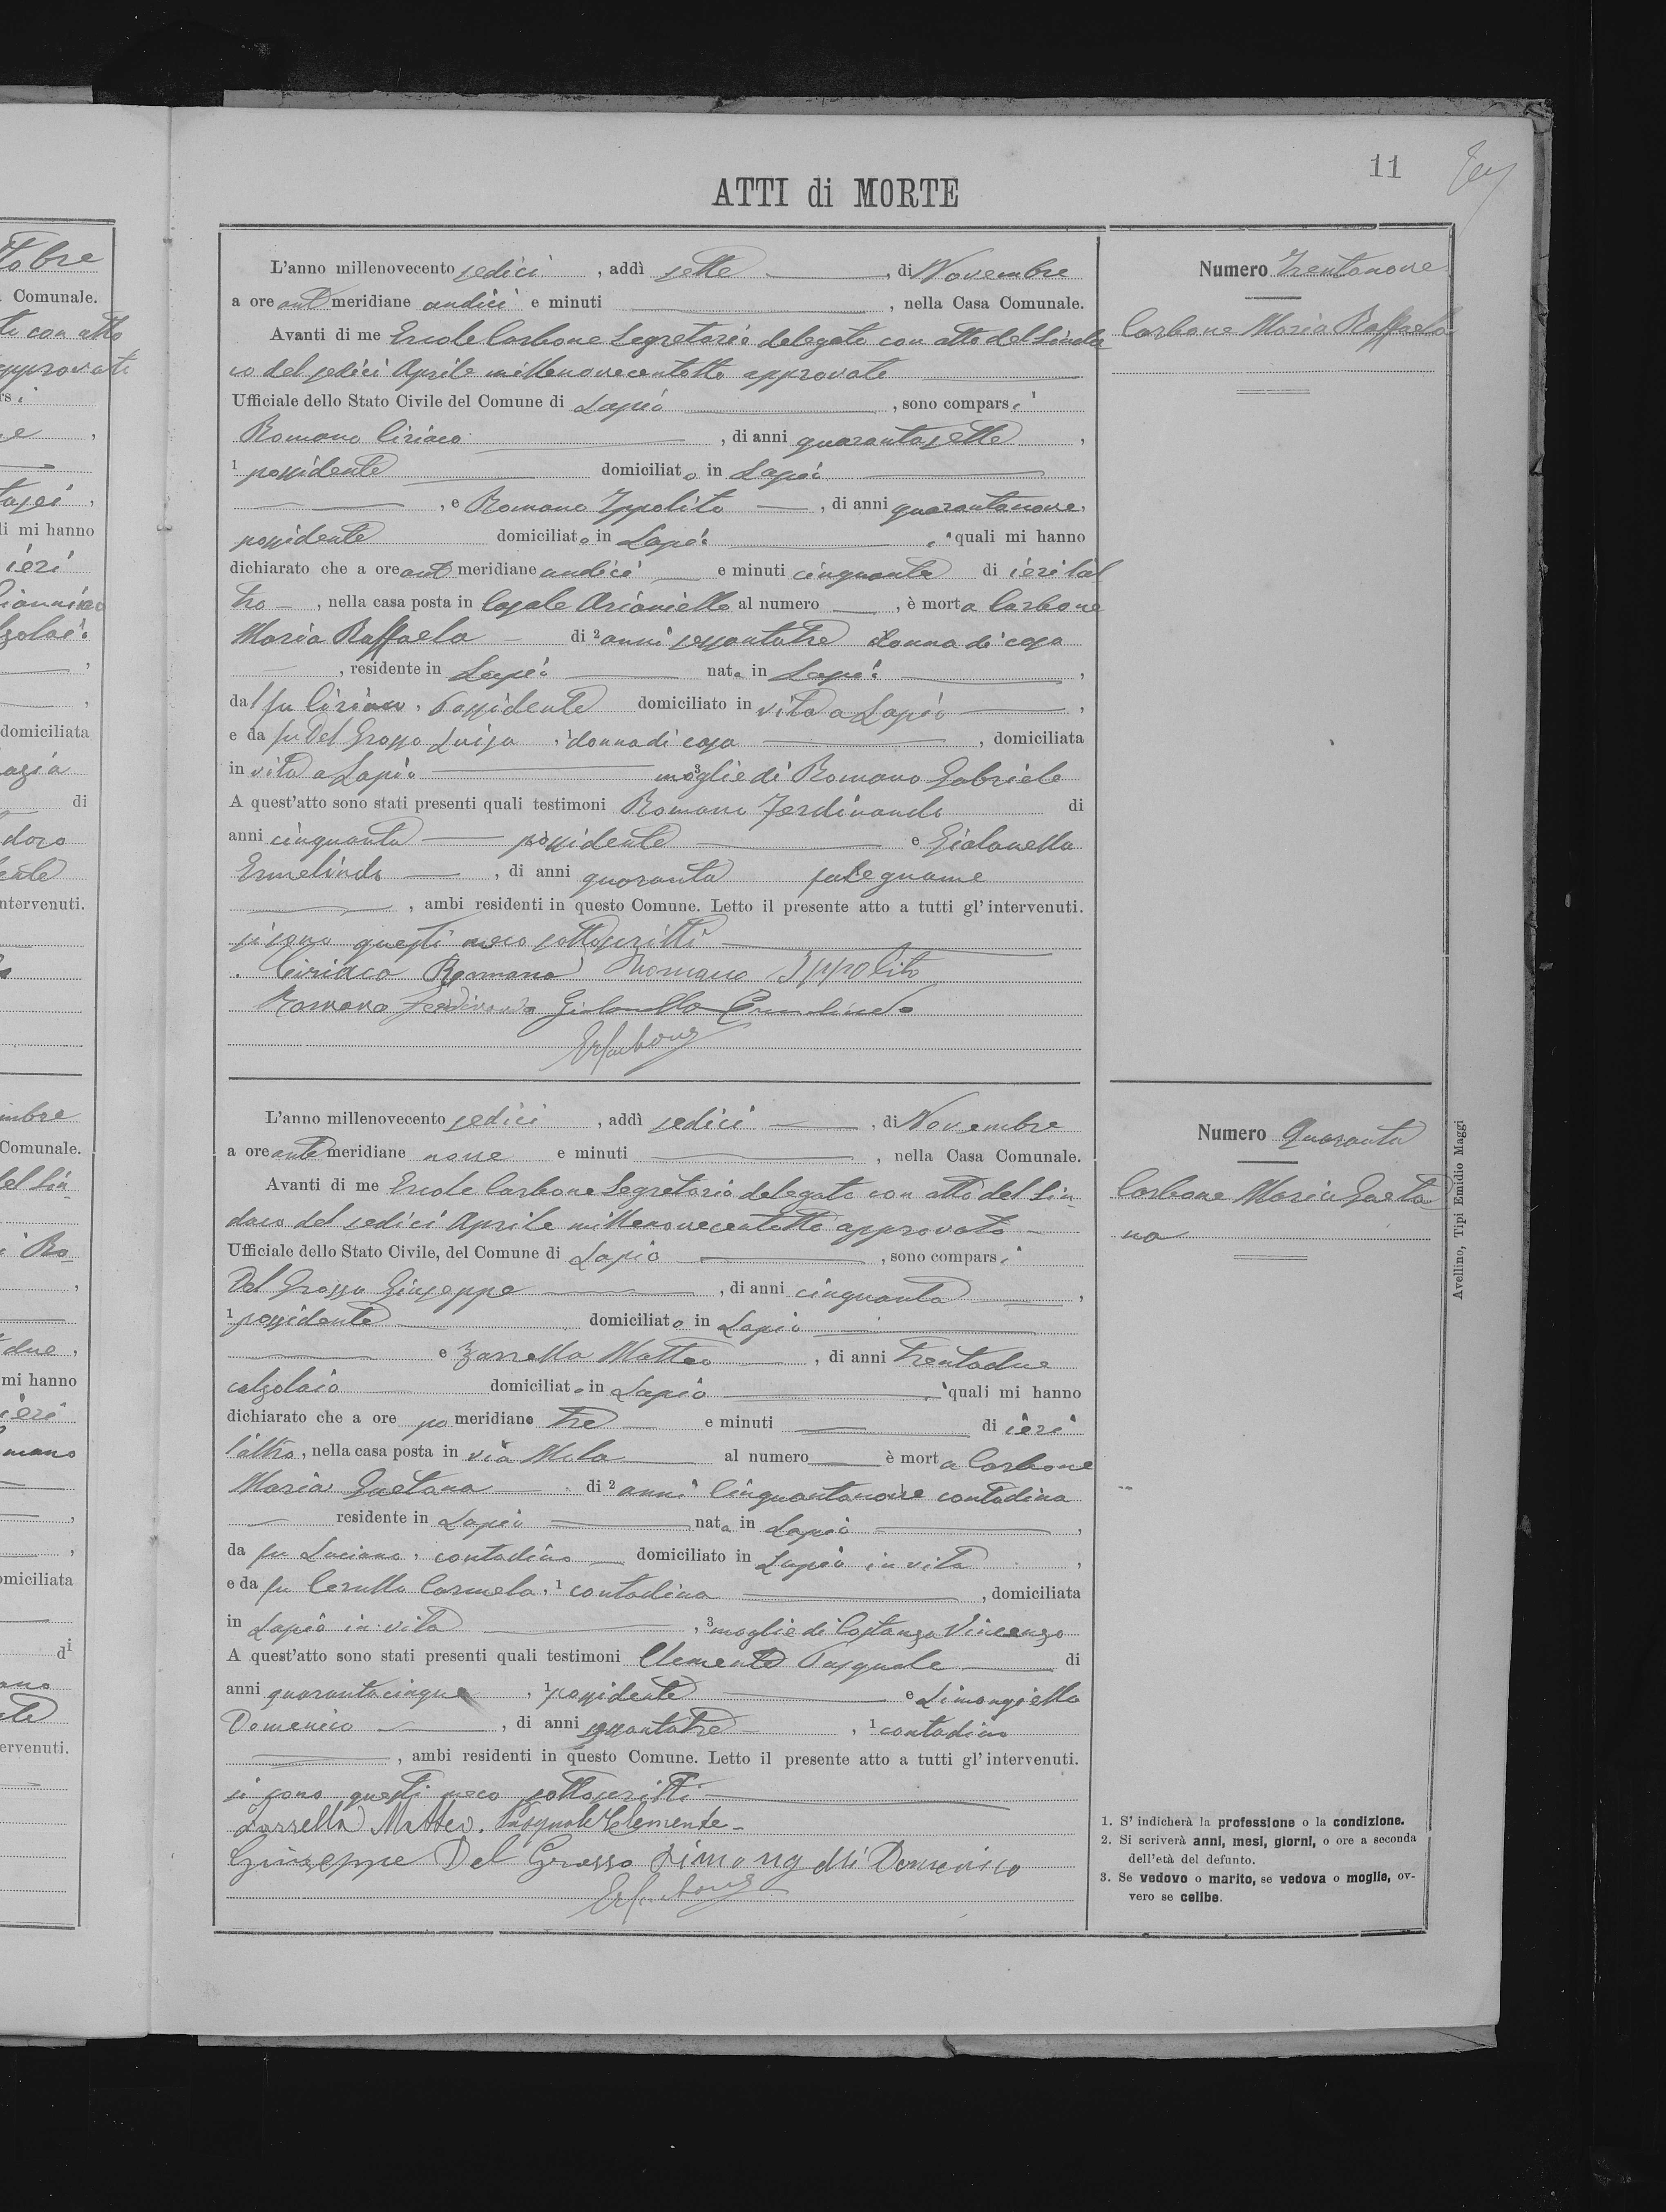 11
ATTI di MORTE
Numero Trentanove
Carbone Maria Raffaela
L'anno millenovecento sedici, addì sette, di Novembre
a ore ant meridiane undici e minuti, nella Casa Comunale.
Avanti di me Ercole Carbone Segretario delegato con atto del Sinda
co del sedici Aprile millenovecentotto approvato
Ufficiale dello Stato Civile del Comune di Lapio, sono comparsi
Romano Ciriaco, di anni quarantasette,
1 possidente domiciliato in Lapio
, e Romano Ippolito, di anni quarantanove,
possidente domiciliato in Lapio, i quali mi hanno
dichiarato che a ore ant meridiane undici e minuti cinquanta di ieri l'al
tro, nella casa posta in Casale Arianiello al numero, è morta Carbone
Maria Raffaela di 2 anni sessantatre donna di casa
, residente in Lapio nata in Lapio,
dal fu Ciriaco, possidente domiciliato in vita a Lapio,
e da fu Del Grosso Luisa, donna di casa, domiciliata
in vita a Lapio 3 moglie di Romano Gabriele
A quest'atto sono stati presenti quali testimoni Romano Ferdinando di
anni cinquanta possidente e Giolanella
Ermelindo, di anni quaranta falegname
, ambi residenti in questo Comune. Letto il presente atto a tutti gl'intervenuti.
si sono questi meco sottoscritti
Ciriaco Romano Romano Ippolito
Romano Ferdinando Giolanella Ermelindo
Numero Quaranta
Carbone Maria Gaeta
na
L'anno millenovecento sedici, addì sedici, di Novembre
a ore ante meridiane nove e minuti, nella Casa Comunale.
Avanti di me Ercole Carbone Segretario delegato con atto del Sin-
daco del sedici Aprile millenovecentotto approvato
Ufficiale dello Stato Civile, del Comune di Lapio, sono comparsi
Del Grosso Giuseppe, di anni cinquanta,
1 possidente domiciliato in Lapio
e Zarrella Matteo, di anni trentadue
calzolaio domiciliato in Lapio, i quali mi hanno
dichiarato che a ore po meridiane tre e minuti di ieri
l'altro, nella casa posta in via Mela al numero è morta Carbone
Maria Gaetana di 2 anni cinquantanove contadina
residente in Lapio nata in Lapio,
da fu Luciano, contadino domiciliato in Lapio in vita,
e da fu Cerullo Carmela, 1 contadina, domiciliata
in Lapio in vita, 3 moglie di Costanza Vincenzo
A quest'atto sono stati presenti quali testimoni Clemente Pasquale di
anni quarantacinque, 1 possidente e Limongiello
Domenico, di anni sessantatre, 1 contadino
, ambi residenti in questo Comune. Letto il presente atto a tutti gl'intervenuti.
si sono questi meco sottoscritti
Zarrella Matteo. Pasquale Clemente
Giuseppe Del Grosso Domenico
1. S'indicherà la professione o la condizione.
2. Si scriverà anni, mesi, giorni, o ore a seconda
dell'età del defunto.
3. Se vedovo o marito, se vedova o moglie, ov-
vero se celibe.
Avellino, Tipi Emidio Maggi